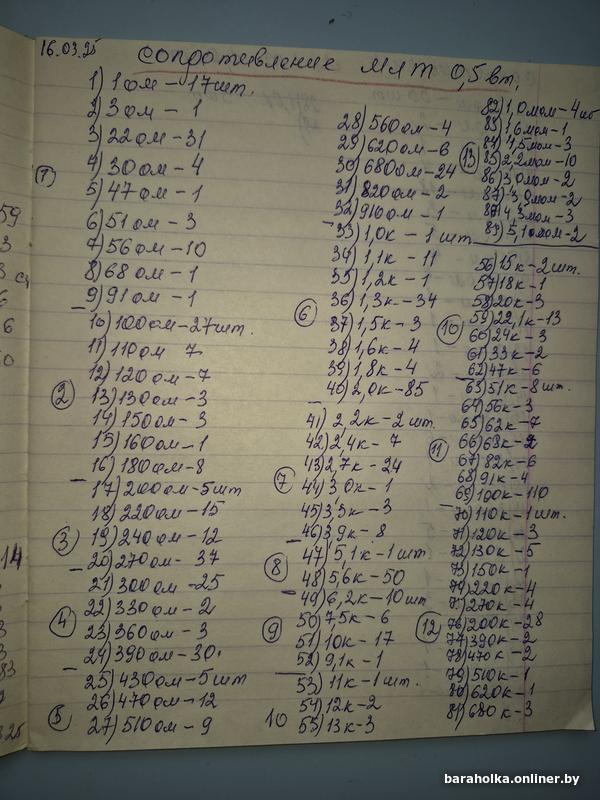 16.03.25
сопротивление МЛТ 0,5вт.
1) 1 ом – 17шт.
2) 3 ом – 1
3) 22 ом – 31
4) 30 ом – 4
(1)
5) 47 ом – 1
6) 51 ом – 3
7) 56 ом – 10
8) 68 ом – 1
9) 91 ом – 1
10) 100 ом – 27шт.
11) 110 ом 7
12) 120 ом – 7
(2)
13) 130 ом – 3
14) 150 ом – 3
15) 160 ом – 1
16) 180 ом – 8
17) 200 ом – 5шт
18) 220 ом – 15
(3)
19) 240 ом – 12
20) 270 ом – 37
21) 300 ом – 25
22) 330 ом – 2
(4)
23) 360 ом – 3
24) 390 ом – 30
25) 430 ом – 5шт
26) 470 ом – 12
(5)
27) 510 ом – 9
28) 560 ом – 4
29) 620 ом – 6
30) 680 ом – 24
31) 820 ом – 2
32) 910 ом – 1
33) 1,0к – 1 шт
34) 1,1к – 11
35) 1,2к – 1
36) 1,3к – 34
(6)
37) 1,5к – 3
38) 1,6к – 4
39) 1,8к – 4
40) 2,0к – 85
41) 2,2к – 2 шт.
42) 2,4к – 7
43) 2,7к – 24
(7)
44) 3,0к – 1
45) 3,3к – 3
46) 3,9к – 8
47) 5,1к – 1 шт
(8)
48) 5,6к – 50
49) 6,2к – 10шт
50) 7,5к – 6
(9)
51) 10к – 17
52) 9,1к – 1
53) 11к – 1 шт.
54) 12к – 2
10
55) 13к – 3
82) 1,0мом – 4шт
83) 1,6мом – 1
84) 1,5мом – 3
(13)
85) 2,2мом – 10
86) 3,0мом – 2
87) 3,9мом – 2
4,3мом – 3
89) 5,10мом – 2
56) 15к – 2шт.
57) 18к – 1
58) 20к – 3
59) 22,1к – 13
(10)
60) 24к – 3
61) 33к – 2
62) 47к – 6
63) 51к – 8шт.
64) 56к – 3
65) 62к – 7
66) 68к – 2
(11)
67) 82к – 6
68) 91к – 4
69) 100к – 110
70) 110к – 1 шт.
71) 120к – 3
72) 130к – 5
73) 150к – 1
74) 220к – 4
75) 270к – 4
(12)
76) 200к – 28
77) 390к – 2
78) 470к – 2
79) 510к – 1
80) 620к – 1
81) 680к – 3
59
3
6
6
14
83
325
baraholka.onliner.by